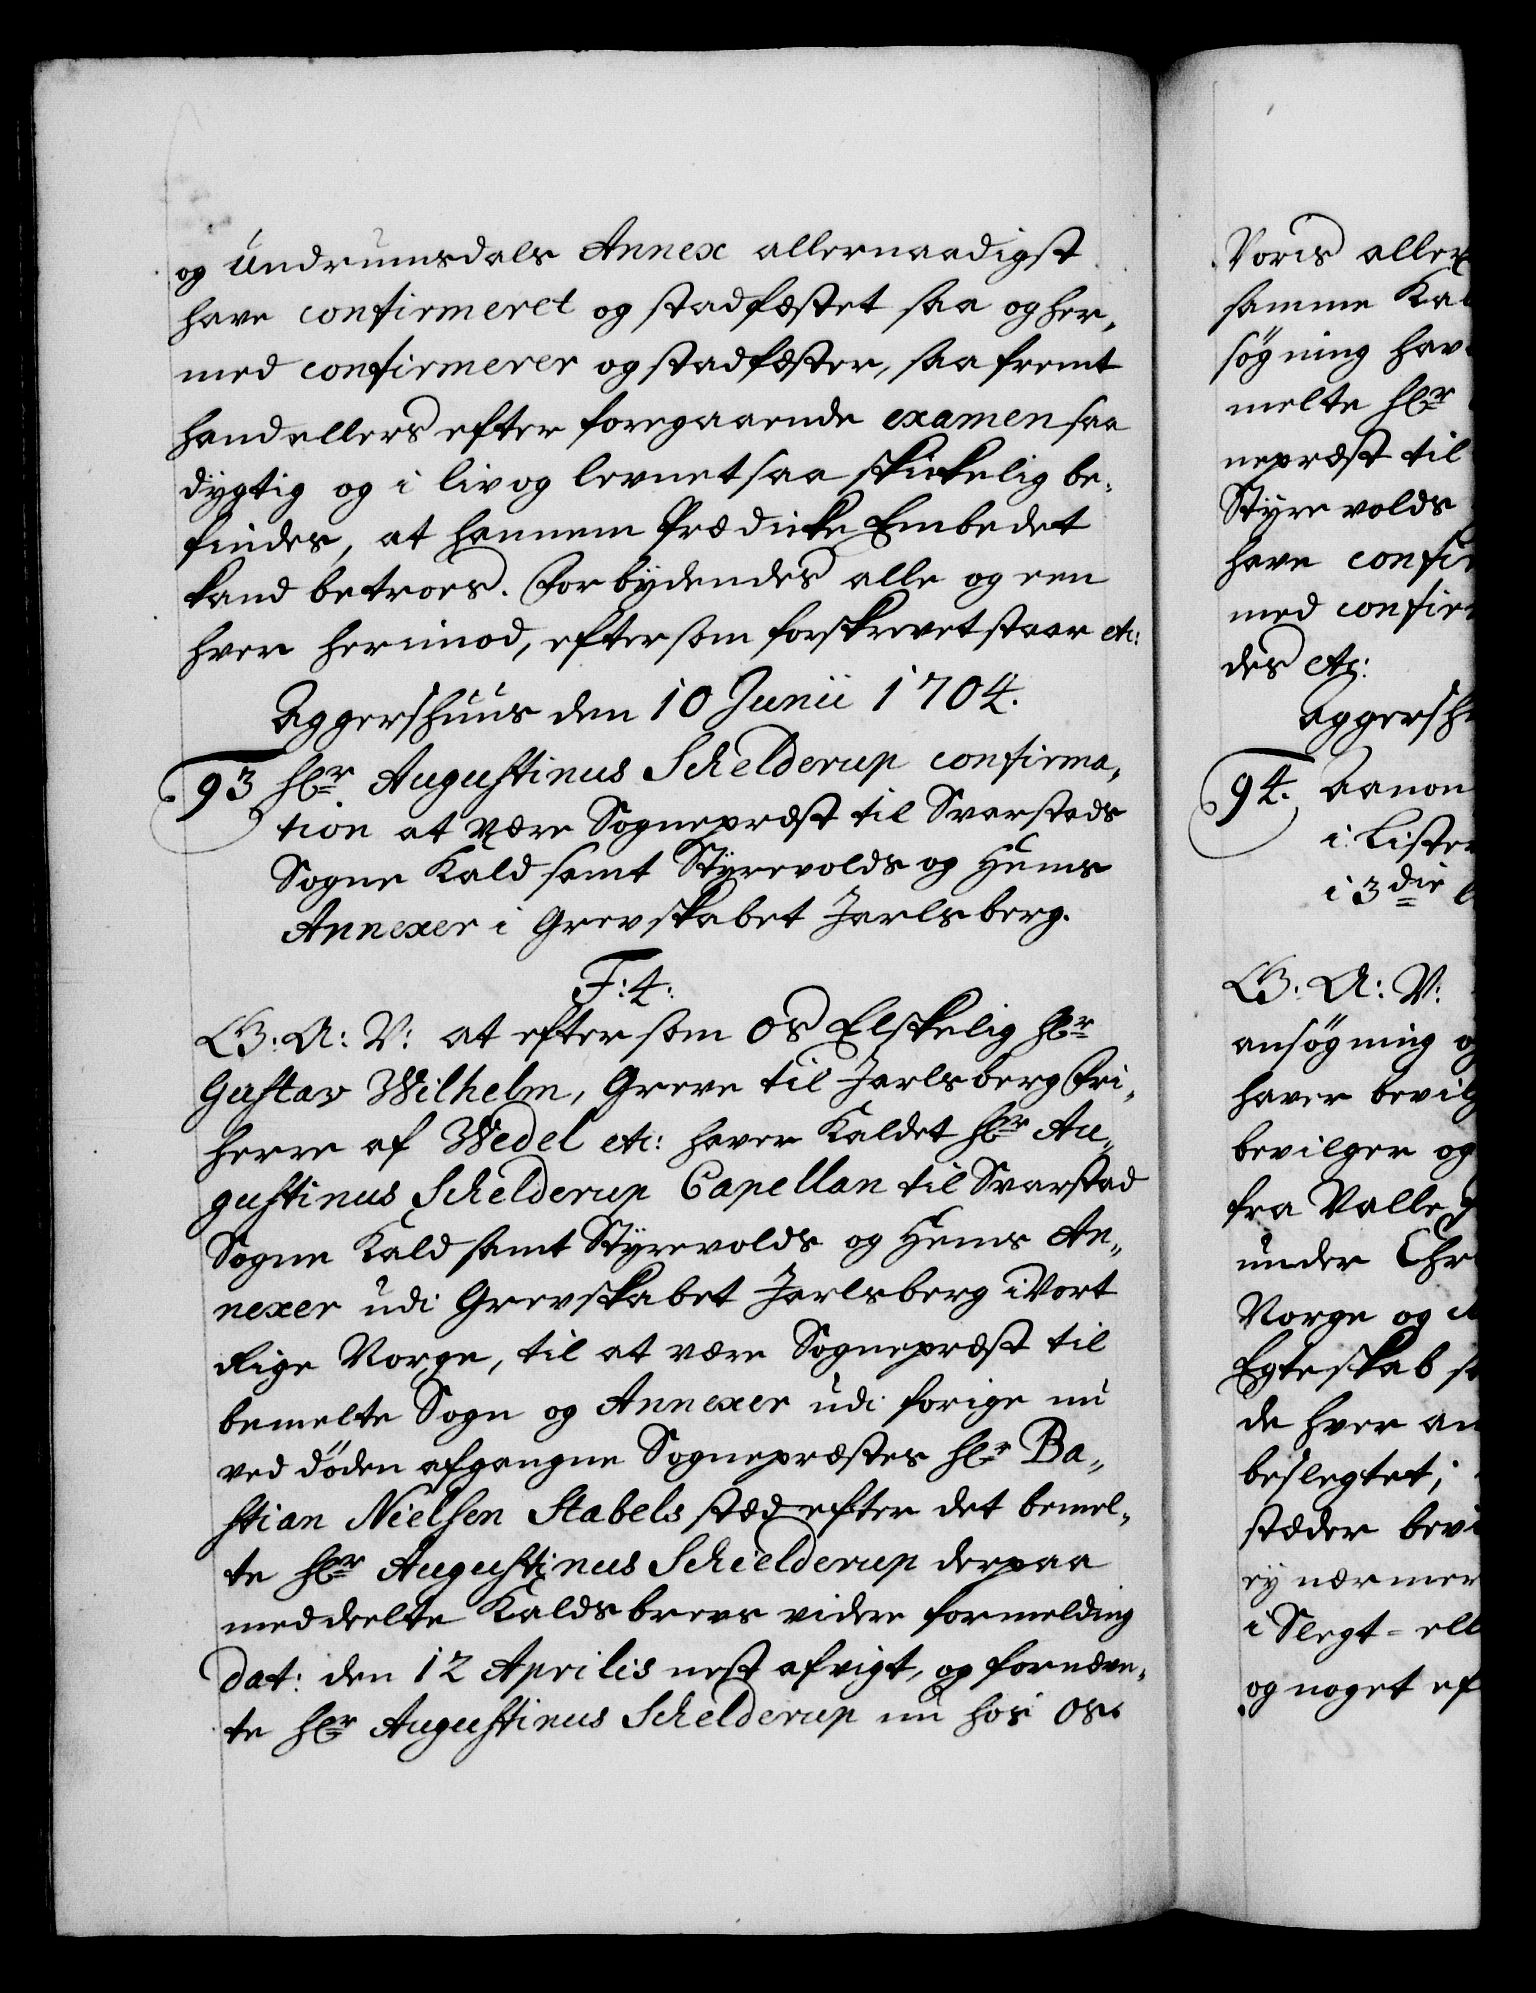 og Undrumsdals Annex allernaadigst
have confirmeret og stadfæstet saa og her„
med confirmerer og stadfæster, saafremt
hand ellers efter foregaaende examen saa
dygtig og i liv og levnet saa skickelig be„
findes, at hannem Prædicke Embedet
kand betroes. Forbydendes alle og een
hver herimod, eftersom forskrevet staar etc:
Aggershuus den 10 Junii 1704.
93 Hr Augustinus Schelderup confirma„
tion at være Sognepræst til Svarstads
Sogne Kald samt Styrevolds og Hems
Annexer i Grevskabet Jarlsberg.
F: 4:
G. A: V: at eftersom Os Elskelig Hr
Gustav Wilhelm, Greve til Jarlsberg Fri„
herre af Wedel etc: haver Kaldet Hr Au„
gustinus Schelderup Capellan til Svarstad
Sogne Kald samt Styrevolds og Hems An„
nexer udi Grevskabet Jarlsberg i Vort
Rige Norge, til at være Sognepræst til
bemelte Sogn og Annexer udi forige nu
ved döden afgangne Sognepræstes Hr Ba„
stian Nielsen Stabels stæd efter det bemel„
te Hr Augustinus Schielderup derpaa
meddeelte Kaldsbrevs videre formelding
dat: den 12 Aprilis nest afvigt, og fornævn„
te Hr Augustinus Schelderup nu hos Os
Voris aller
samme Kal
søgning hav
melte Hr
nepræst til
Styrevolds
have confir
med confir
des etc:
Aggershu
94. Aanon
i Lister
i 3die
G. A: V:
ansøgning og
haver bevilg
bevilger og
fra Valle
under Chr
Norge og
Egteskab
de hver an
beslegtet;
stæder bevi
ey nærmer
i Slegt- ell
og noget ef